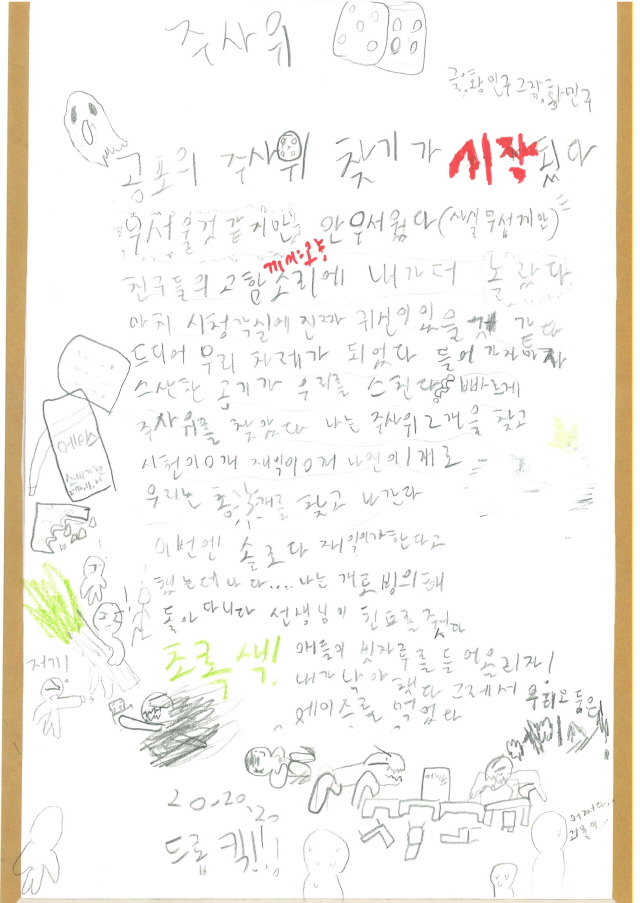 주사위
글:황민구 그림:황민구
공포의 주사위 찾기가 시작됬다
무서울것 같지만 안무서웠다(사실무섭게만)
끼야:으악
친구들의 고함소리에 내가더 놀랐다
마치 시청각실에 진짜 귀신이 있을 것 같다
드디어 우리 차례가 되었다 들어가자마자
스산한 공기가 우리를 스친다 빠르게
주사위를 찾았다 나는 주사위2개을 찾고
시헌이0개 재익이0개 나연이1개로
우리는 총 3개를 찾고 나간다
에이스
이번엔 솔로다 재익이가한다고
했는데 나다.... 나는 개로빙의해
돌아다니다 선생님이 힌트를 줬다
초록색!
애들의 빗자루를 들어올리자!
내가 나아갔다 그래서 우리모둠은
에이스를 먹었다
저기!
에이스
20.20.20
드롭킥!!